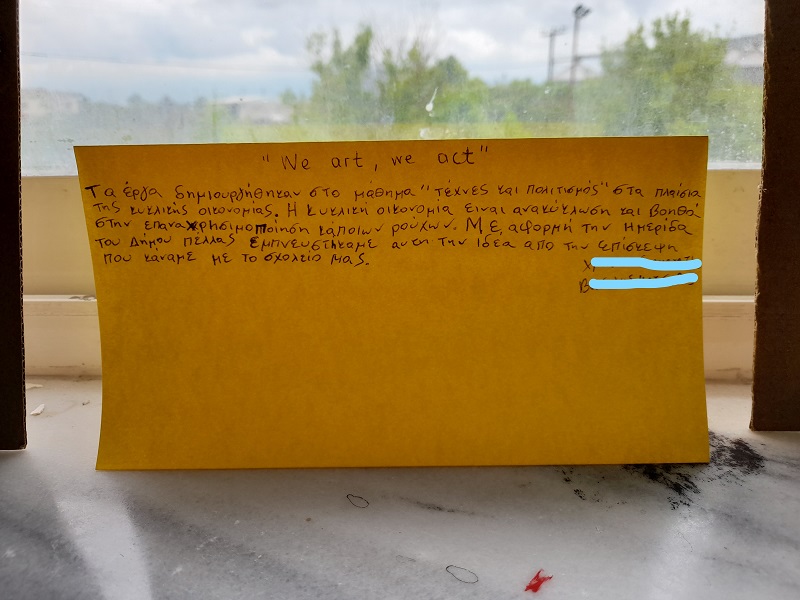 "We art, we act"
Τα έργα δημιουργήθηκαν στο μάθημα "τέχνες και πολιτισμός" στα πλαίσια
της κυκλικής οικονομίας. Η κυκλική οικονομία ειναι ανακύκλωση και βοηθά
στην επαναχρησιμοποίηση κάποιων ρούχων. Με αφορμή την Ημερίδα
του Δήμου πέλλας εμπνευστήκαμε αυτη την ιδέα απο την επίσκεψη
που κάναμε με το σχολείο μας.